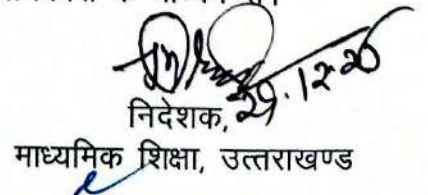 29.12.20
निदेशक,
माध्यमिक शिक्षा, उत्तराखण्ड